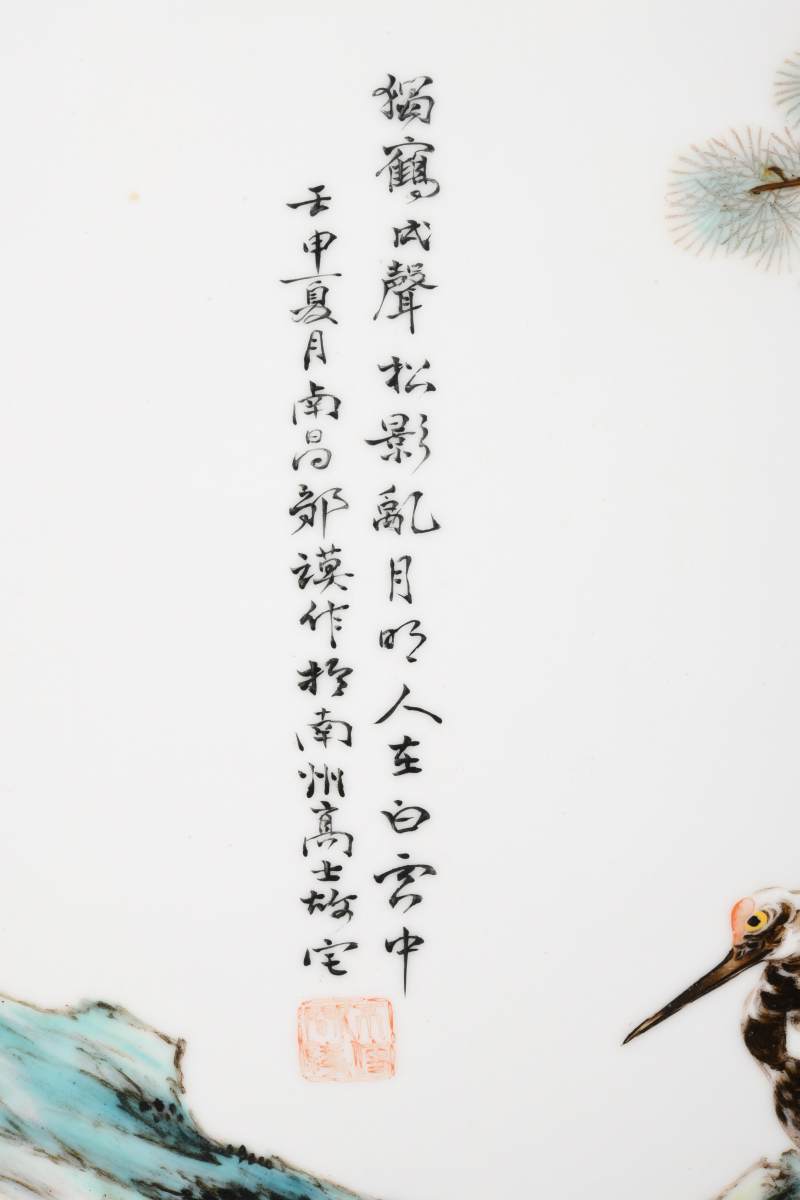 獨鶴成聲松影亂月明人在白雲中
壬申夏月南昌鄒謨作於南州高士故宅